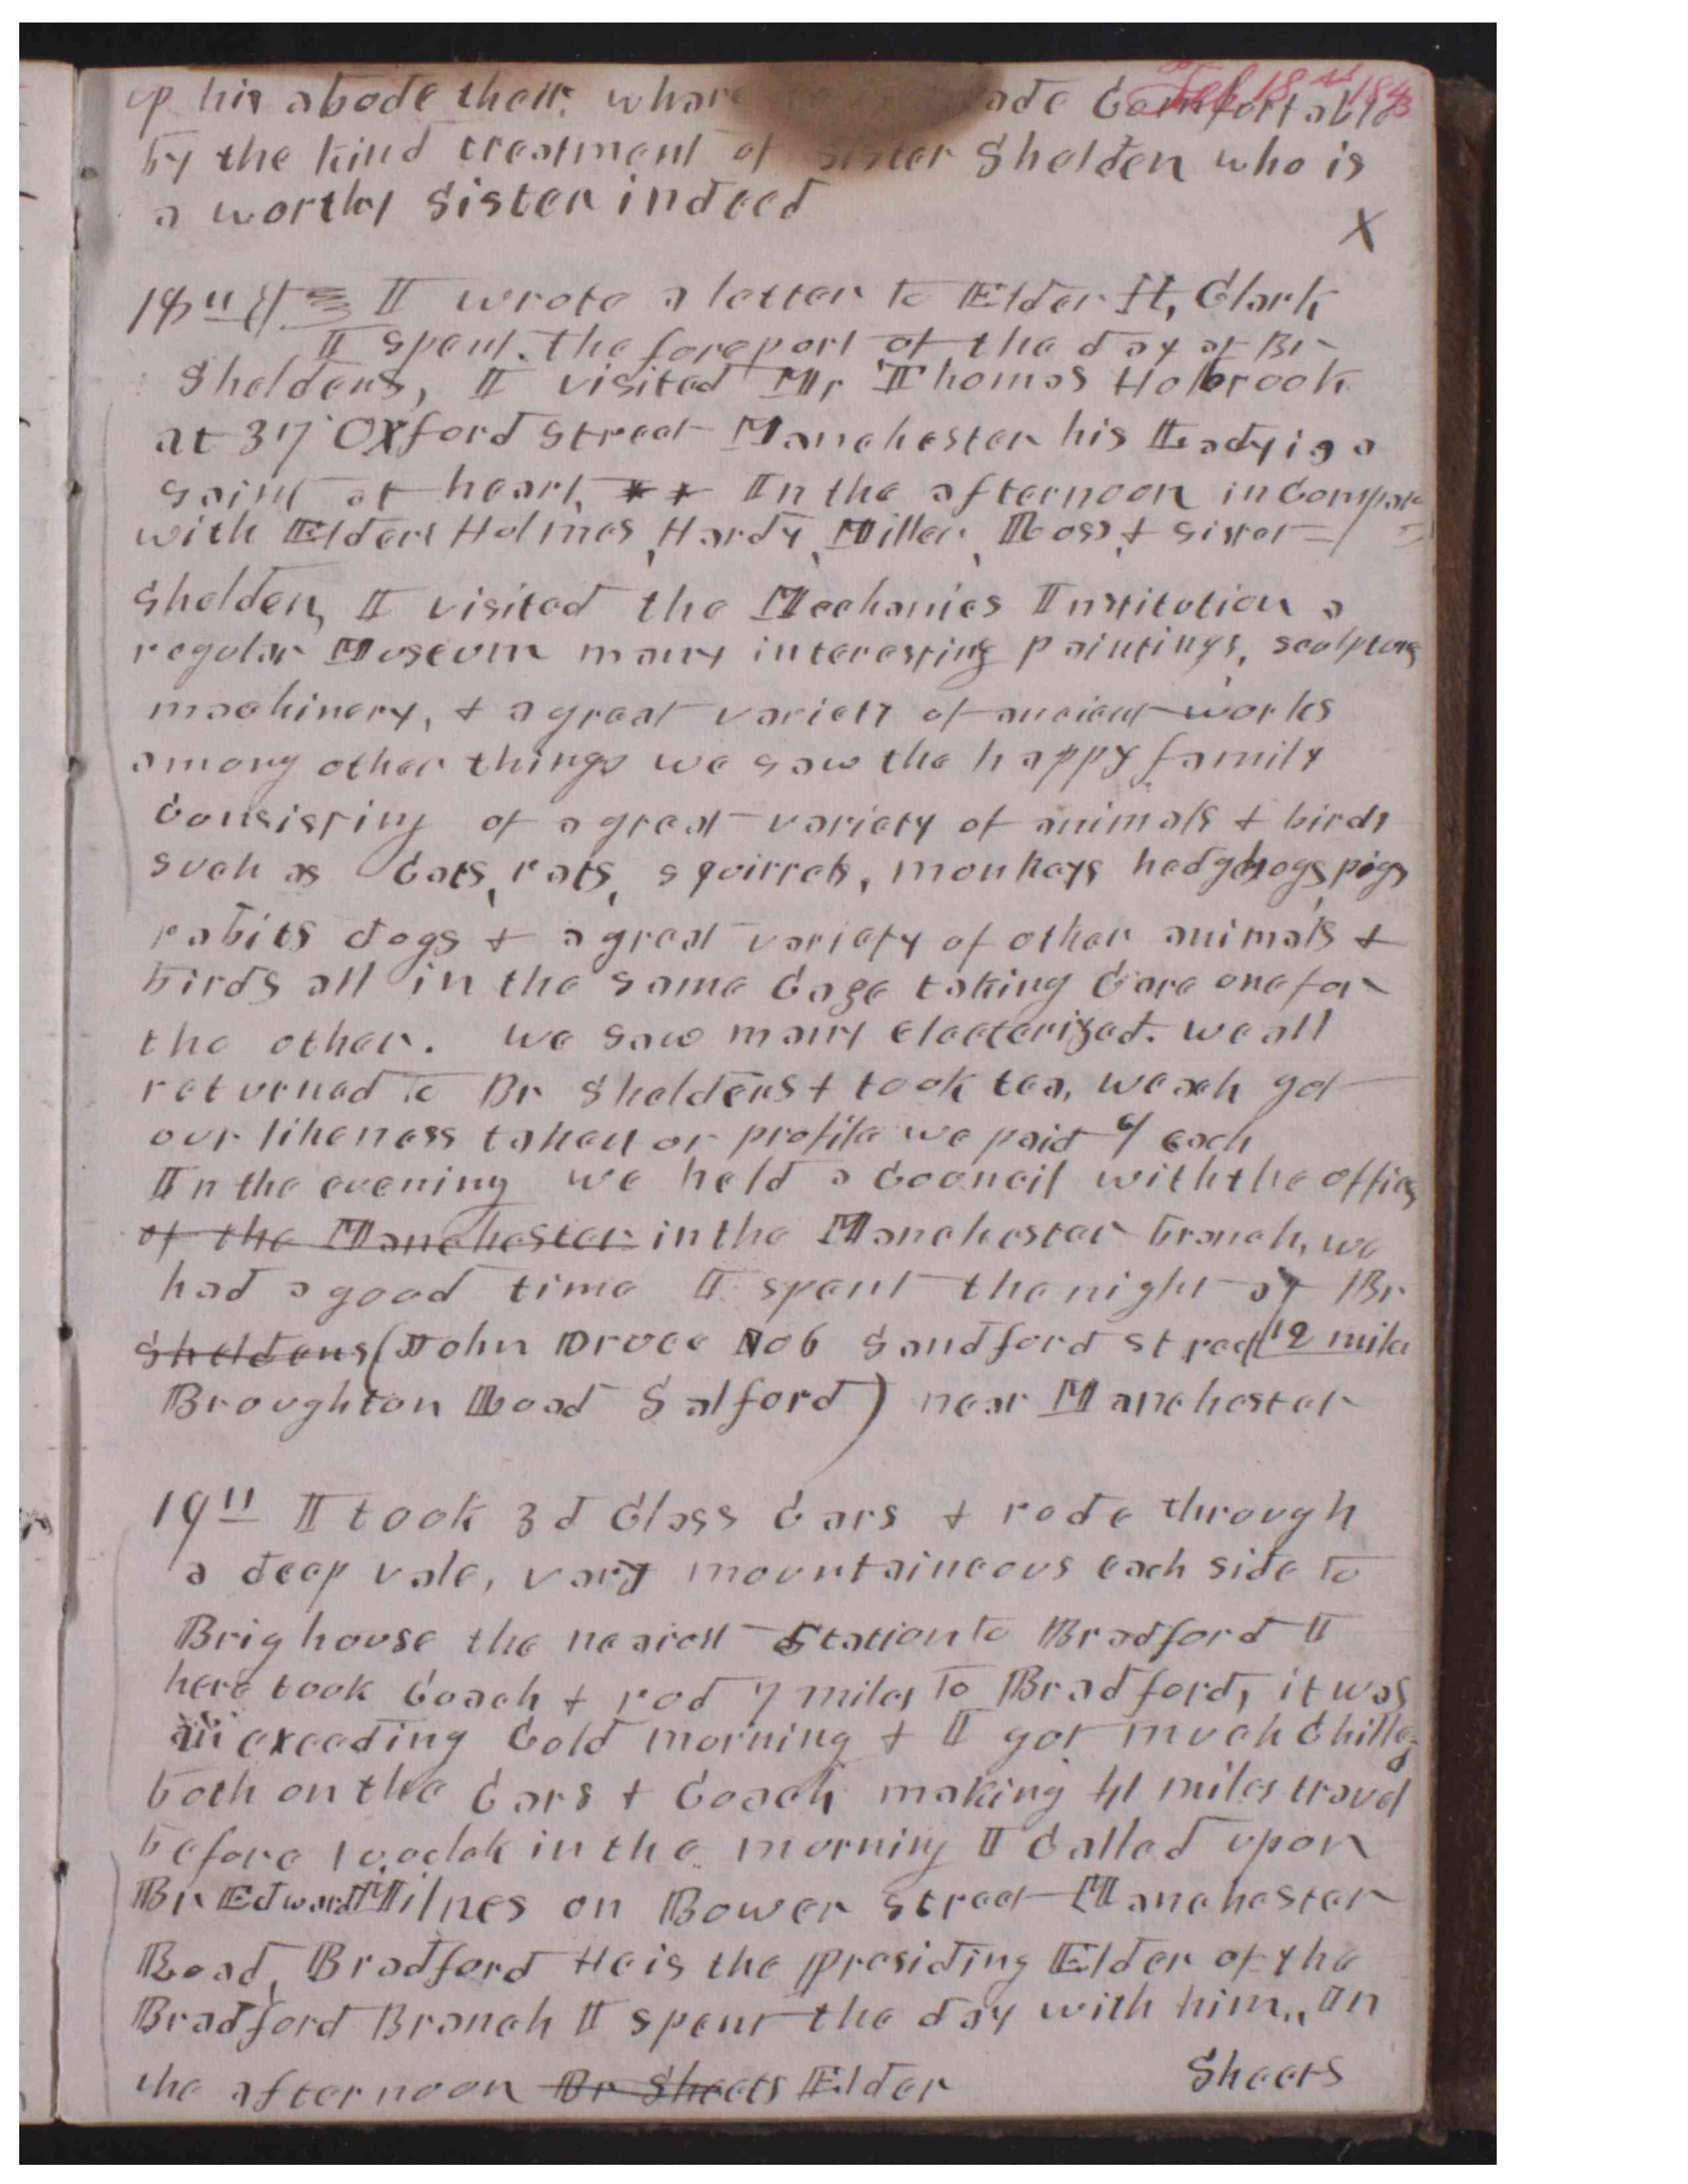 Feb 18th 1845
up his abode their. whare ade Comfortable
by the kind treatment of Sister Shelden who is
a worthy Sister indeed
X
18th I wrote a letter to Elder H, Clark
I spent the forepart of the day at Br
Sheldens, I visited Mr Thomas Holbrook
at 37 Oxford Street Manchester his Lady is a
saint at heart, ** In the afternoon in Company
with Elders Holmes, Hardy, Miller, Ross, & sister
Shelden, I visited the Mechanics Institution a
regular Museum many interesting paintings, sculpture
machinery, & a great variety of ancient works
among other things we saw the happy family
Consisting of a great variety of animals & birds
such as Cats, rats, squirrels, monkeys hedghogs, pigs
rabits dogs & a great variety of other animals &
birds all in the same Cage taking Care one for
the other. we saw many electerized. we all
returned to Br Sheldens & took tea, we each got
our likeness taken or profile we paid 6/ each
In the evening we held a Councif with the offices
of the Manchester in the Manchester branch, we
had a good time I spent the night at Br
Sheldens (John Druce No 6 Sandford Street 12 mile
Broughton Road Salford) near Manchester
19th I took 3d Class Cars & rode through
a deep vale, vary mountaineous each side to
Brighouse the nearest Station to Bradford I
here took Coach & rod 7 miles to Bradford, it was
an exceeding Cold morning & I got much Chilled
both on the Cars & Coach making 41 miles travel
before 10 oclok in the morning I Called upon
Br Edward Milnes on Bower street Manchester
Road, Bradford He is the presiding Elder of the
Bradford Branch I spent the day with him., In
the afternoon Br Sheets Elder Sheets